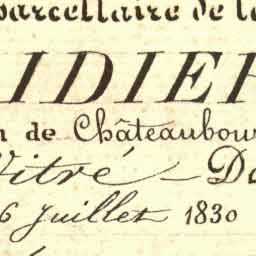 parcellaire de l
IDIE
n de Châteaubou
Vitré — D
6 Juillet 1830